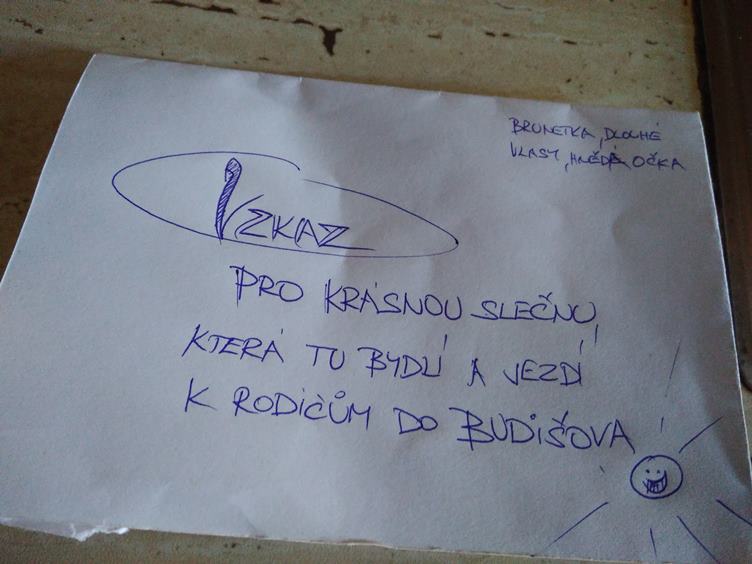 BRUNETKA, DLOUHÉ
VLASY, HNĚDÁ OČKA
VZKAZ
PRO KRÁSNOU SLEČNU,
KTERÁ TU BYDLÍ A JEZDÍ
K RODIČŮM DO BUDIŠOVA